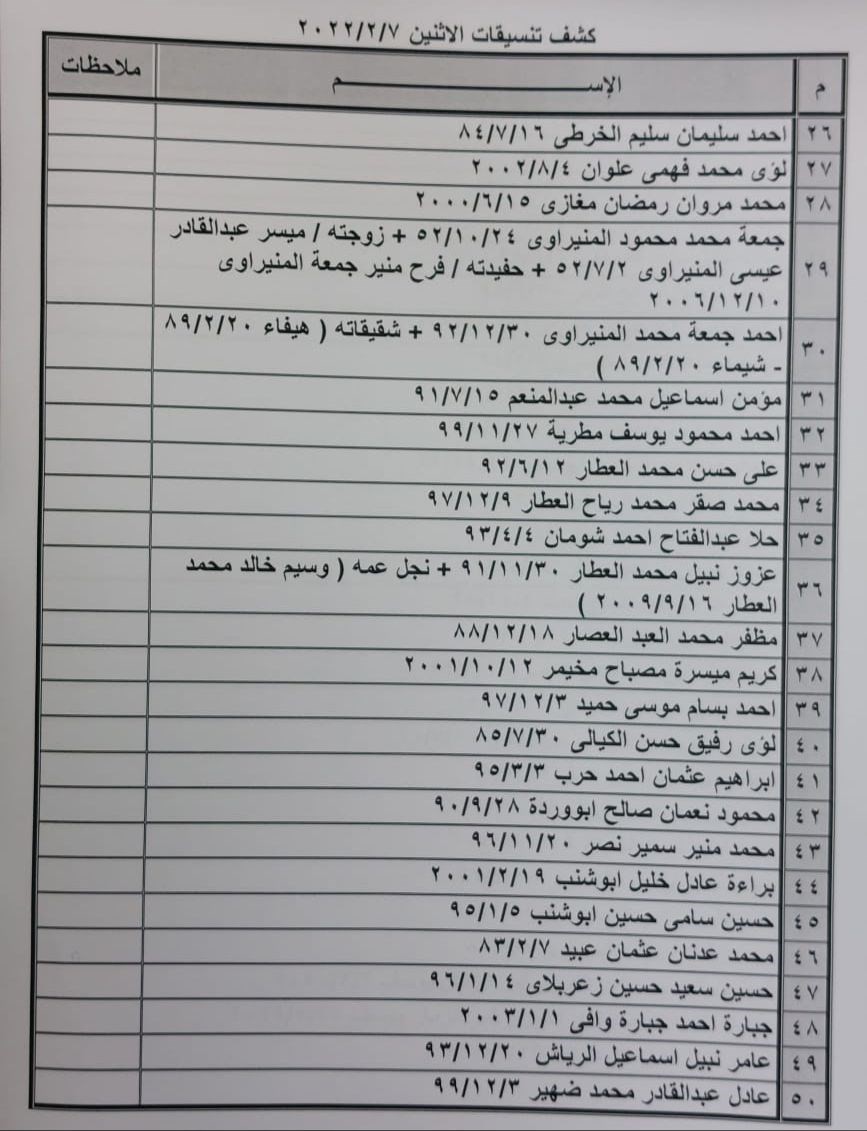 كشف تنسيقات الاثنين ٢٠٢٢/٢/٧
م الإســـــــــــــم ملاحظات
٢٦ احمد سليمان سليم الخرطى ٨٤/٧/١٦
٢٧ لؤى محمد فهمى علوان ٢٠٠٢/٨/٤
٢٨ محمد مروان رمضان مغازى ٢٠٠٠/٦/١٥
٢٩ جمعة محمد محمود المنيراوى ٥٢/١٠/٢٤ + زوجته / ميسر عبدالقادر
عيسى المنيراوى ٥٢/٧/٢ + حفيدته / فرح منير جمعة المنيراوى
٢٠٠٦/١٢/١٠
٣٠ احمد جمعة محمد المنيراوى ٩٢/١٢/٣٠ + شقيقاته ( هيفاء ٨٩/٢/٢٠
- شيماء ٨٩/٢/٢٠ )
٣١ مؤمن اسماعيل محمد عبدالمنعم ٩١/٧/١٥
٣٢ احمد محمود يوسف مطرية ٩٩/١١/٢٧
٣٣ على حسن محمد العطار ٩٢/٦/١٢
٣٤ محمد صقر محمد رياح العطار ٩٧/١٢/٩
٣٥ حلا عبدالفتاح احمد شومان ٩٣/٤/٤
٣٦ عزوز نبيل محمد العطار ٩١/١١/٣٠ + نجل عمه ( وسيم خالد محمد
العطار ٢٠٠٩/٩/١٦ )
٣٧ مظفر محمد العبد العصار ٨٨/١٢/١٨
٣٨ كريم ميسرة مصباح مخيمر ٢٠٠١/١٠/١٢
٣٩ احمد بسام موسى حميد ٩٧/١٢/٣
٤٠ لؤى رفيق حسن الكيالى ٨٥/٧/٣٠
٤١ ابراهيم عثمان احمد حرب ٩٥/٣/٣
٤٢ محمود نعمان صالح ابووردة ٩٠/٩/٢٨
٤٣ محمد منير سمير نصر ٩٦/١١/٢٠
٤٤ براءة عادل خليل ابوشنب ٢٠٠١/٢/١٩
٤٥ حسين سامى حسين ابوشنب ٩٥/١/٥
٤٦ محمد عدنان عثمان عبيد ٨٣/٢/٧
٤٧ حسين سعيد حسين زعربلاى ٩٦/١/١٤
٤٨ جبارة احمد جبارة وافى ٢٠٠٣/١/١
٤٩ عامر نبيل اسماعيل الرياش ٩٣/١٢/٢٠
٥٠ عادل عبدالقادر محمد ضهير ٩٩/١٢/٣